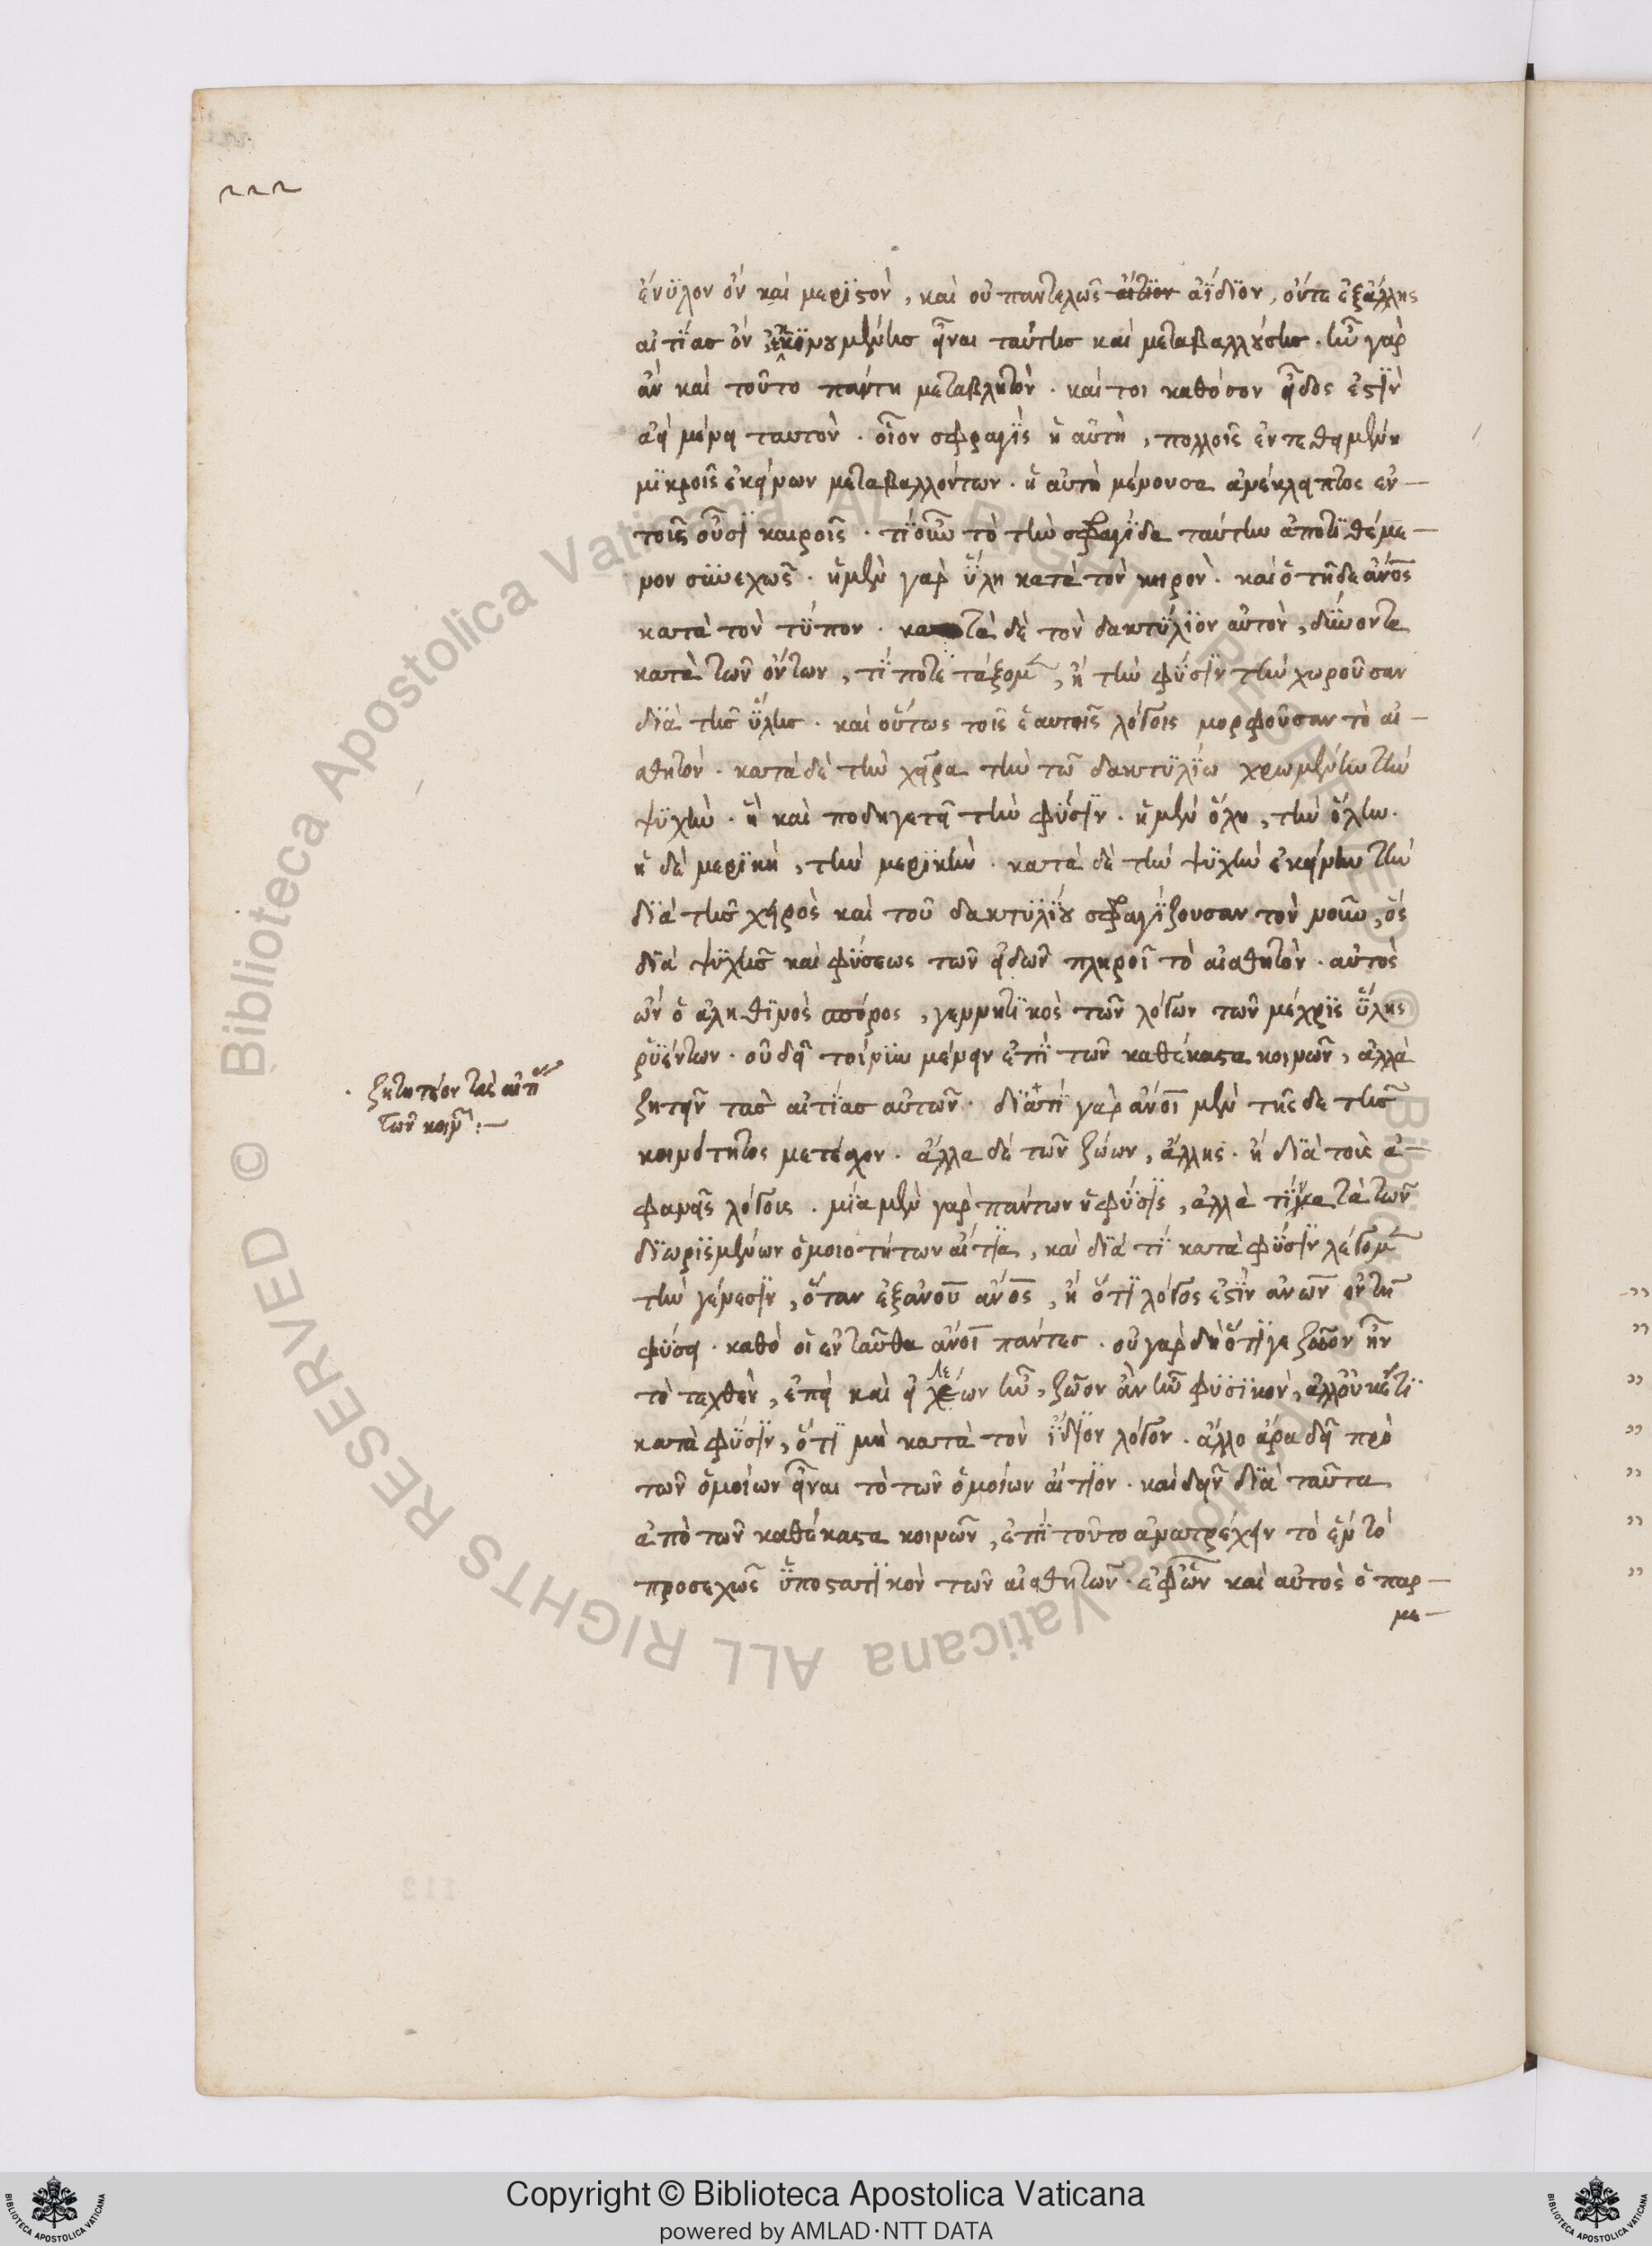 ἐνϋλον ὂν καὶ μεριστὸν, καὶ οὐ παντελῶς αἴτιον ἀΐδιον, οὔτε ἐξ ἄλλης
αἰτίας ὂν κινουμένης εἶναι ταύτης καὶ μεταβαλλούσης. ἦν γὰρ
ἂν καὶ τοῦτο πάντη μεταβλητόν. καίτοι καθόσον εἶδος ἐστὶν
ἀεὶ μένει ταυτόν. οἷον σφραγὶς ἡ αὐτὴ, πολλοῖς ἐντεθειμένη
μικροῖς ἐκείνων μεταβαλλόντων. ἡ αὐτὴ μένουσα ἀνέκλειπτος ἐν
τοῖς οὖσι καιροῖς. τί οὖν τὸ τὴν σφραγίδα ταύτην ἀποτιθέμε
νον συνεχῶς. ἡ μὲν γὰρ ὕλη κατὰ τὸν κηρόν. καὶ ὁ τῇδε ἄνος
κατὰ τὸν τύπον. κατὰ δὲ τὸν δακτύλιον αὐτὸν, δύνοντα
κατὰ τῶν ὄντων, τί ποτε τάξομεν, ἢ τὴν φύσιν τὴν χωροῦσαν
διὰ τῆς ὕλης. καὶ οὕτως τοῖς ἑαυτῆς λόγοις μορφοῦσαν τὸ αἰ
σθητόν. κατὰ δὲ τὴν χεῖρα τὴν τῶ δακτυλίω χρωμένην τὴν
ψυχὴν. ἣ καὶ ποδηγετεῖ τὴν φύσιν. ἡ μὲν ὅλη, τὴν ὅλην.
ἡ δὲ μερικὴ, τὴν μερικήν. κατὰ δὲ τὴν ψυχὴν ἐκείνην τὴν
διὰ τῆς χειρὸς καὶ τοῦ δακτυλίου σφραγίζουσαν τὸν νοῦν, ὃς
διὰ ψυχῆς καὶ φύσεως τῶν εἰδῶν πληροῖ τὸ αἰσθητόν. αὐτὸς
ὢν ὁ ἀληθινὸς πόρος, γεννητικὸς τῶν λόγων τῶν μέχρις ὕλης
ῥυέντων. οὐ δεῖ τοίνυν μένειν ἐπὶ τῶν καθέκαστα κοινῶν, ἀλλὰ
ζητεῖν τὰς αἰτίας αὐτῶν. διατί γὰρ ἄνοι μὲν τῆσδε τῆς
κοινότητος μετέχον. ἄλλα δὲ τῶν ζώων, ἄλλης. ἢ διὰ τοὺς ἀ
φανεῖς λόγους. μία μὲν γὰρ πάντων ἡ φύσις, ἀλλὰ τίνα τὰ τῶν
διωρισμένων ὁμοιοτήτων αἴτια, καὶ διὰ τί κατὰ φύσιν λέγομεν
τὴν γένεσιν, ὅταν ἐξ ἀνοῦ ἄνος, ἢ ὅτι λόγος ἐστὶν ἀνῶν ἐν τῆ
φύσει. καθὸ οἱ ἐνταῦθα ἄνοι πάντες. οὐ γὰρ δὴ ὅτι γε ζῶον ἦν
τὸ ταχθὲν, ἐπεὶ καὶ εἰ λέων ἦν, ζῶον ἂν ἦν φυσικὸν, ἀλλ' οὐκέτι
κατὰ φύσιν, ὅτι μὴ κατὰ τὸν ἴδιον λόγον. ἄλλο ἄρα δεῖ πρὸ
τῶν ὁμοίων εἶναι τὸ τῶν ὁμοίων αἴτιον. καὶ δεῖν διὰ ταῦτα
ἀπὸ τῶν καθέκαστα κοινῶν, ἐπὶ τοῦτο ἀνατρέχειν τὸ ἓν τὸ
προσεχῶς ὑποστατικὸν τῶν αἰσθητῶν. ἐφ' ὧν καὶ αὐτὸς ὁ παρ
με
ζητητέον τὰς αἰτίας
τῶν κοινῶν: